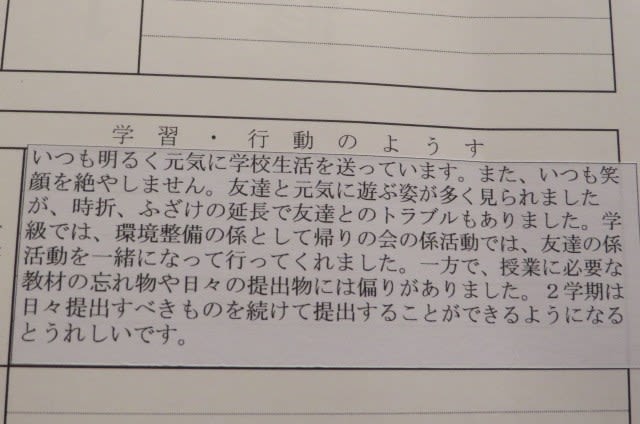 学習・行動のようす
いつも明るく元気に学校生活を送っています。また、いつも笑
顔を絶やしません。友達と元気に遊ぶ姿が多く見られました
が、時折、ふざけの延長で友達とのトラブルもありました。学
級では、環境整備の係として帰りの会の係活動では、友達の係
活動を一緒になって行ってくれました。一方で、授業に必要な
教材の忘れ物や日々の提出物には偏りがありました。２学期は
日々提出すべきものを続けて提出することができるようになる
とうれしいです。